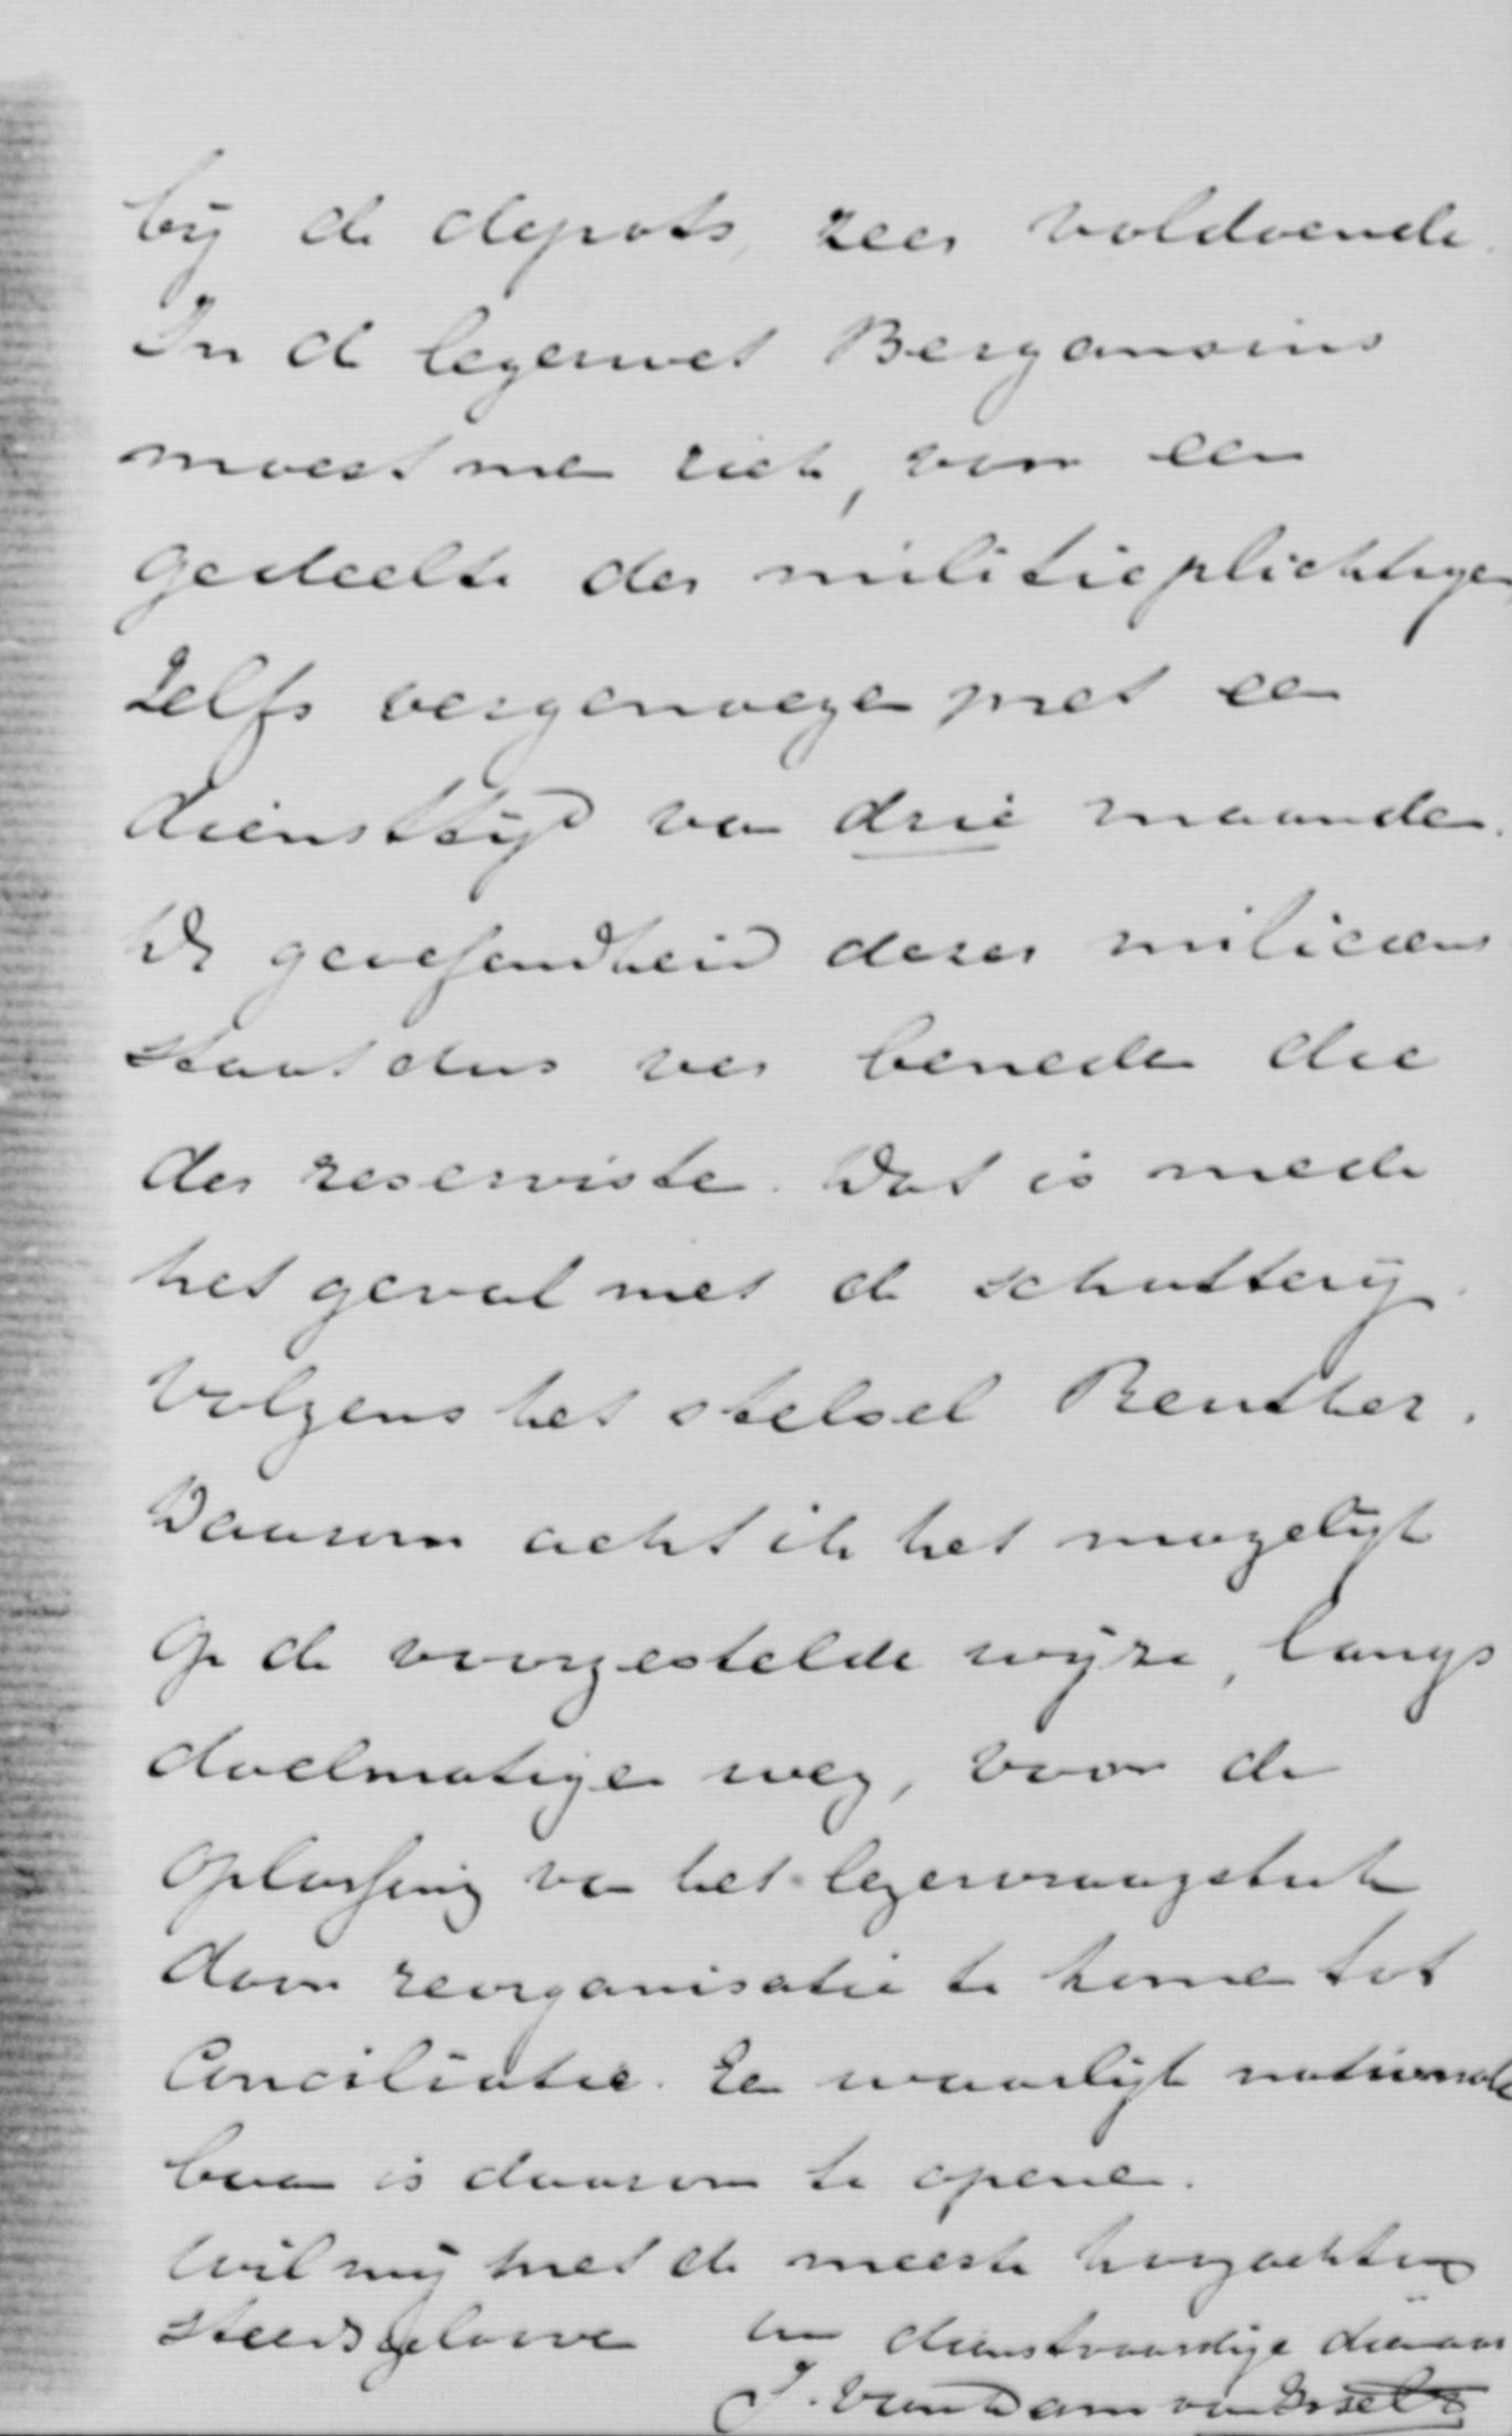 bij de depots, zeer voldoende.
In de legerwet Bergansius
moest men zich, voor een
gedeelte der militieplichtigen
zelfs vergenoegen met een
diensttijd van drie maanden.
De geoefendheid dezer miliciens
staat dus ver beneden die
der reservisten. Dat is mede
het geval met de schutterij
volgens het stelsel Reuther.
Daarom acht ik het mogelijk
op de voorgestelde wijze, langs
doelmatigen weg, voor de
oplossing van het legervraagstuk
door reorganisatie te komen tot
conciliatie. Een waarlijk nationale
baan is daarom te openen.
Wil mij met de meeste hoogachting
steeds gelooven Uw dienstvaardige dienaar
J. van Dam van Isselt